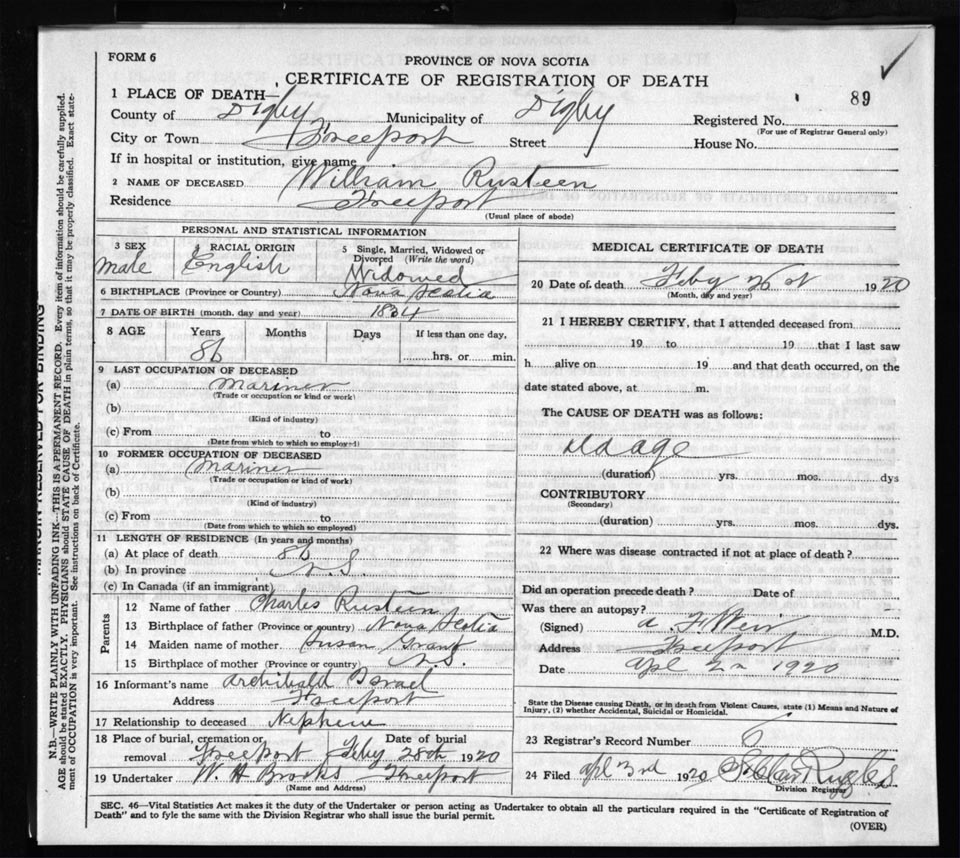 FORM 6
PROVINCE OF NOVA SCOTIA
CERTIFICATE OF REGISTRATION OF DEATH
1 PLACE OF DEATH—
89
County of Digby Municipality of Digby Registered No.
(For use of Registrar General only)
City or Town Freeport Street House No.
If in hospital or institution, give name
2 NAME OF DECEASED William Rusteen
Residence Freeport
(Usual place of abode)
PERSONAL AND STATISTICAL INFORMATION
3 SEX 4 RACIAL ORIGIN 5 Single, Married, Widowed or Divorped (Write the word)
Male English Widowed
6 BIRTHPLACE (Province or Country) Nova Scotia
7 DATE OF BIRTH (month, day and year) 1834
8 AGE Years Months Days If less than one day,
86 hrs. or min.
9 LAST OCCUPATION OF DECEASED
(a) Mariner
(Trade or occupation or kind or work)
(b)
(Kind of industry)
(c) From to
(Date from which to which so employed)
10 FORMER OCCUPATION OF DECEASED
(a) Mariner
(Trade or occupation or kind of work)
(b)
(Kind of industry)
(c) From to
(Date from which to which to employed)
11 LENGTH OF RESIDENCE (In years and months)
(a) At place of death 86
(b) In province N.S.
(c) In Canada (if an immigrant)
Parents
12 Name of father Charles Rusteen
13 Birthplace of father (Province or country) Nova Scotia
14 Maiden name of mother Susan Grant
15 Birthplace of mother (Province or country) N.S.
16 Informant's name Archibald Israel
Address Freeport
17 Relationship to deceased Nephew
18 Place of burial, cremation or removal Date of burial
Freeport Feby 28th 1920
19 Undertaker W. H Brooks Freeport
(Name and Address)
MEDICAL CERTIFICATE OF DEATH
20 Date of death Feby 26 1920
(Month, day and year)
21 I HEREBY CERTIFY, that I attended deceased from
19 to 19 that I last saw
h alive on 19 and that death occurred, on the
date stated above, at m.
The CAUSE OF DEATH was as follows:
age
(duration) yrs. mos. dys
CONTRIBUTORY
(Secondary)
(duration) yrs. mos. dys.
22 Where was disease contracted if not at place of death?
Did an operation precede death? Date of
Was there an autopsy?
(Signed) A. F. Weir M.D.
Address Freeport
Date Apl 2n 1920
State the Disease causing Death, or in death from Violent Causes, state (1) Means and Nature of
Injury, (2) whether Accidental, Suicidal or Homicidal.
23 Registrar's Record Number
24 Filed Apl 3rd 1920 Ruggles
Division Registrar
SEC. 46—Vital Statistics Act makes it the duty of the Undertaker or person acting as Undertaker to obtain all the particulars required in the "Certificate of Registration of
Death" and to fyle the same with the Division Registrar who shall issue the burial permit.
(OVER)
MARGIN RESERVED FOR BINDING
N.B.—WRITE PLAINLY WITH UNFADING INK—THIS IS A PERMANENT RECORD. Every item of information should be carefully supplied.
AGE should be stated EXACTLY. PHYSICIANS should STATE CAUSE OF DEATH in plain terms, so that it may be properly classified. Exact state-
ment of OCCUPATION is very important. See instructions on back of Certificate.